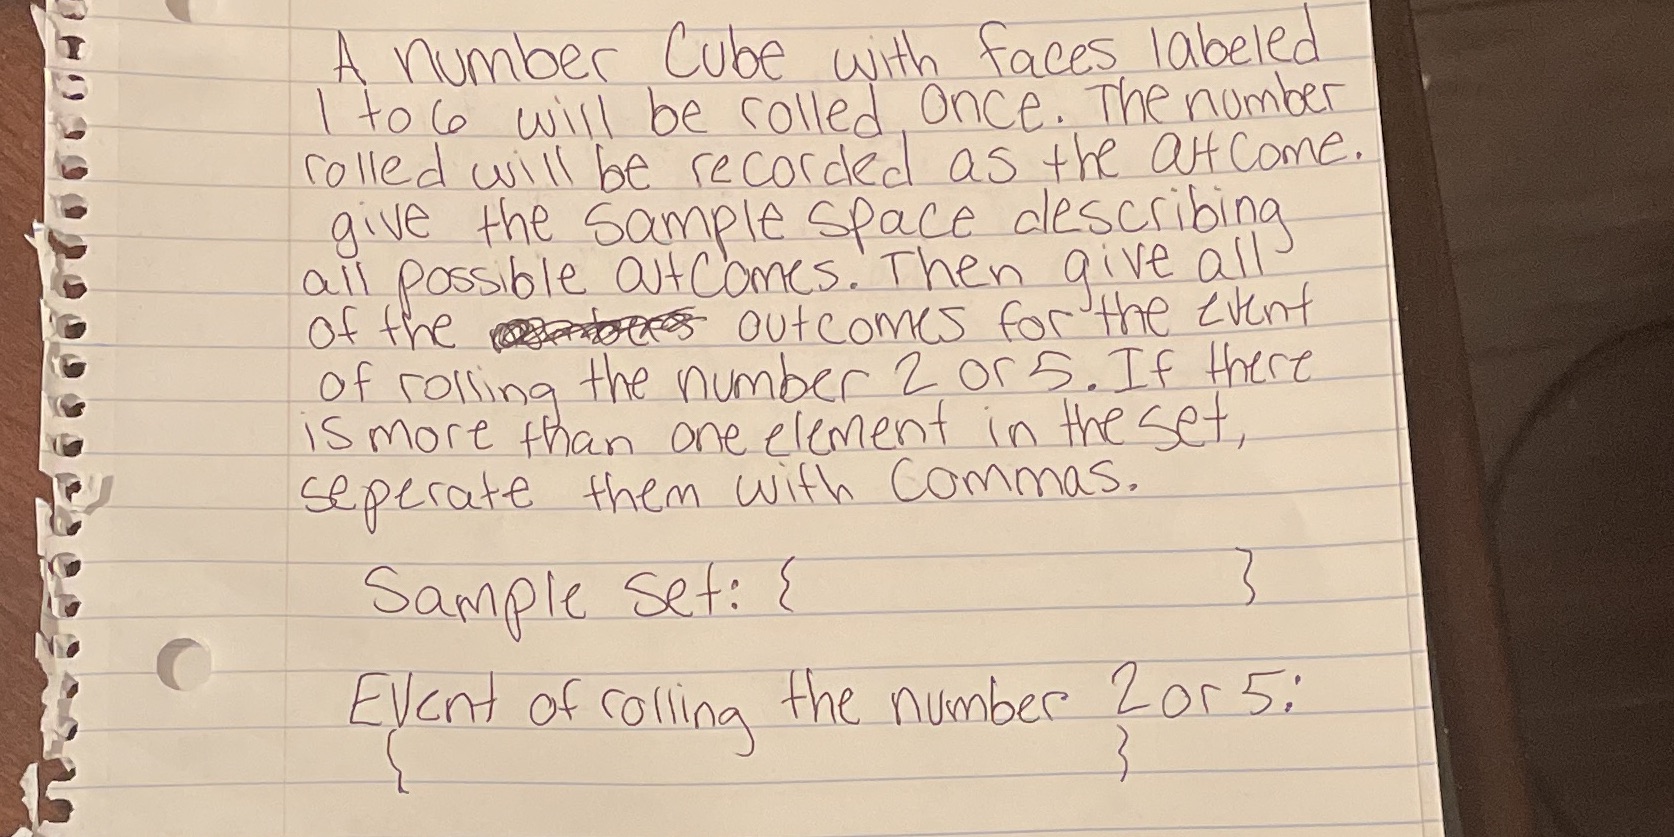 A number Cube with faces labeled
1 to 6 will be rolled once. The number
rolled will be recorded as the outcome.
give the sample space describing
all possible outcomes. Then give all
of the outcomes for the event
of rolling the number 2 or 5. If there
is more than one element in the set,
seperate them with Commas.
Sample Set: { }
Event of rolling the number 2 or 5:
{ }